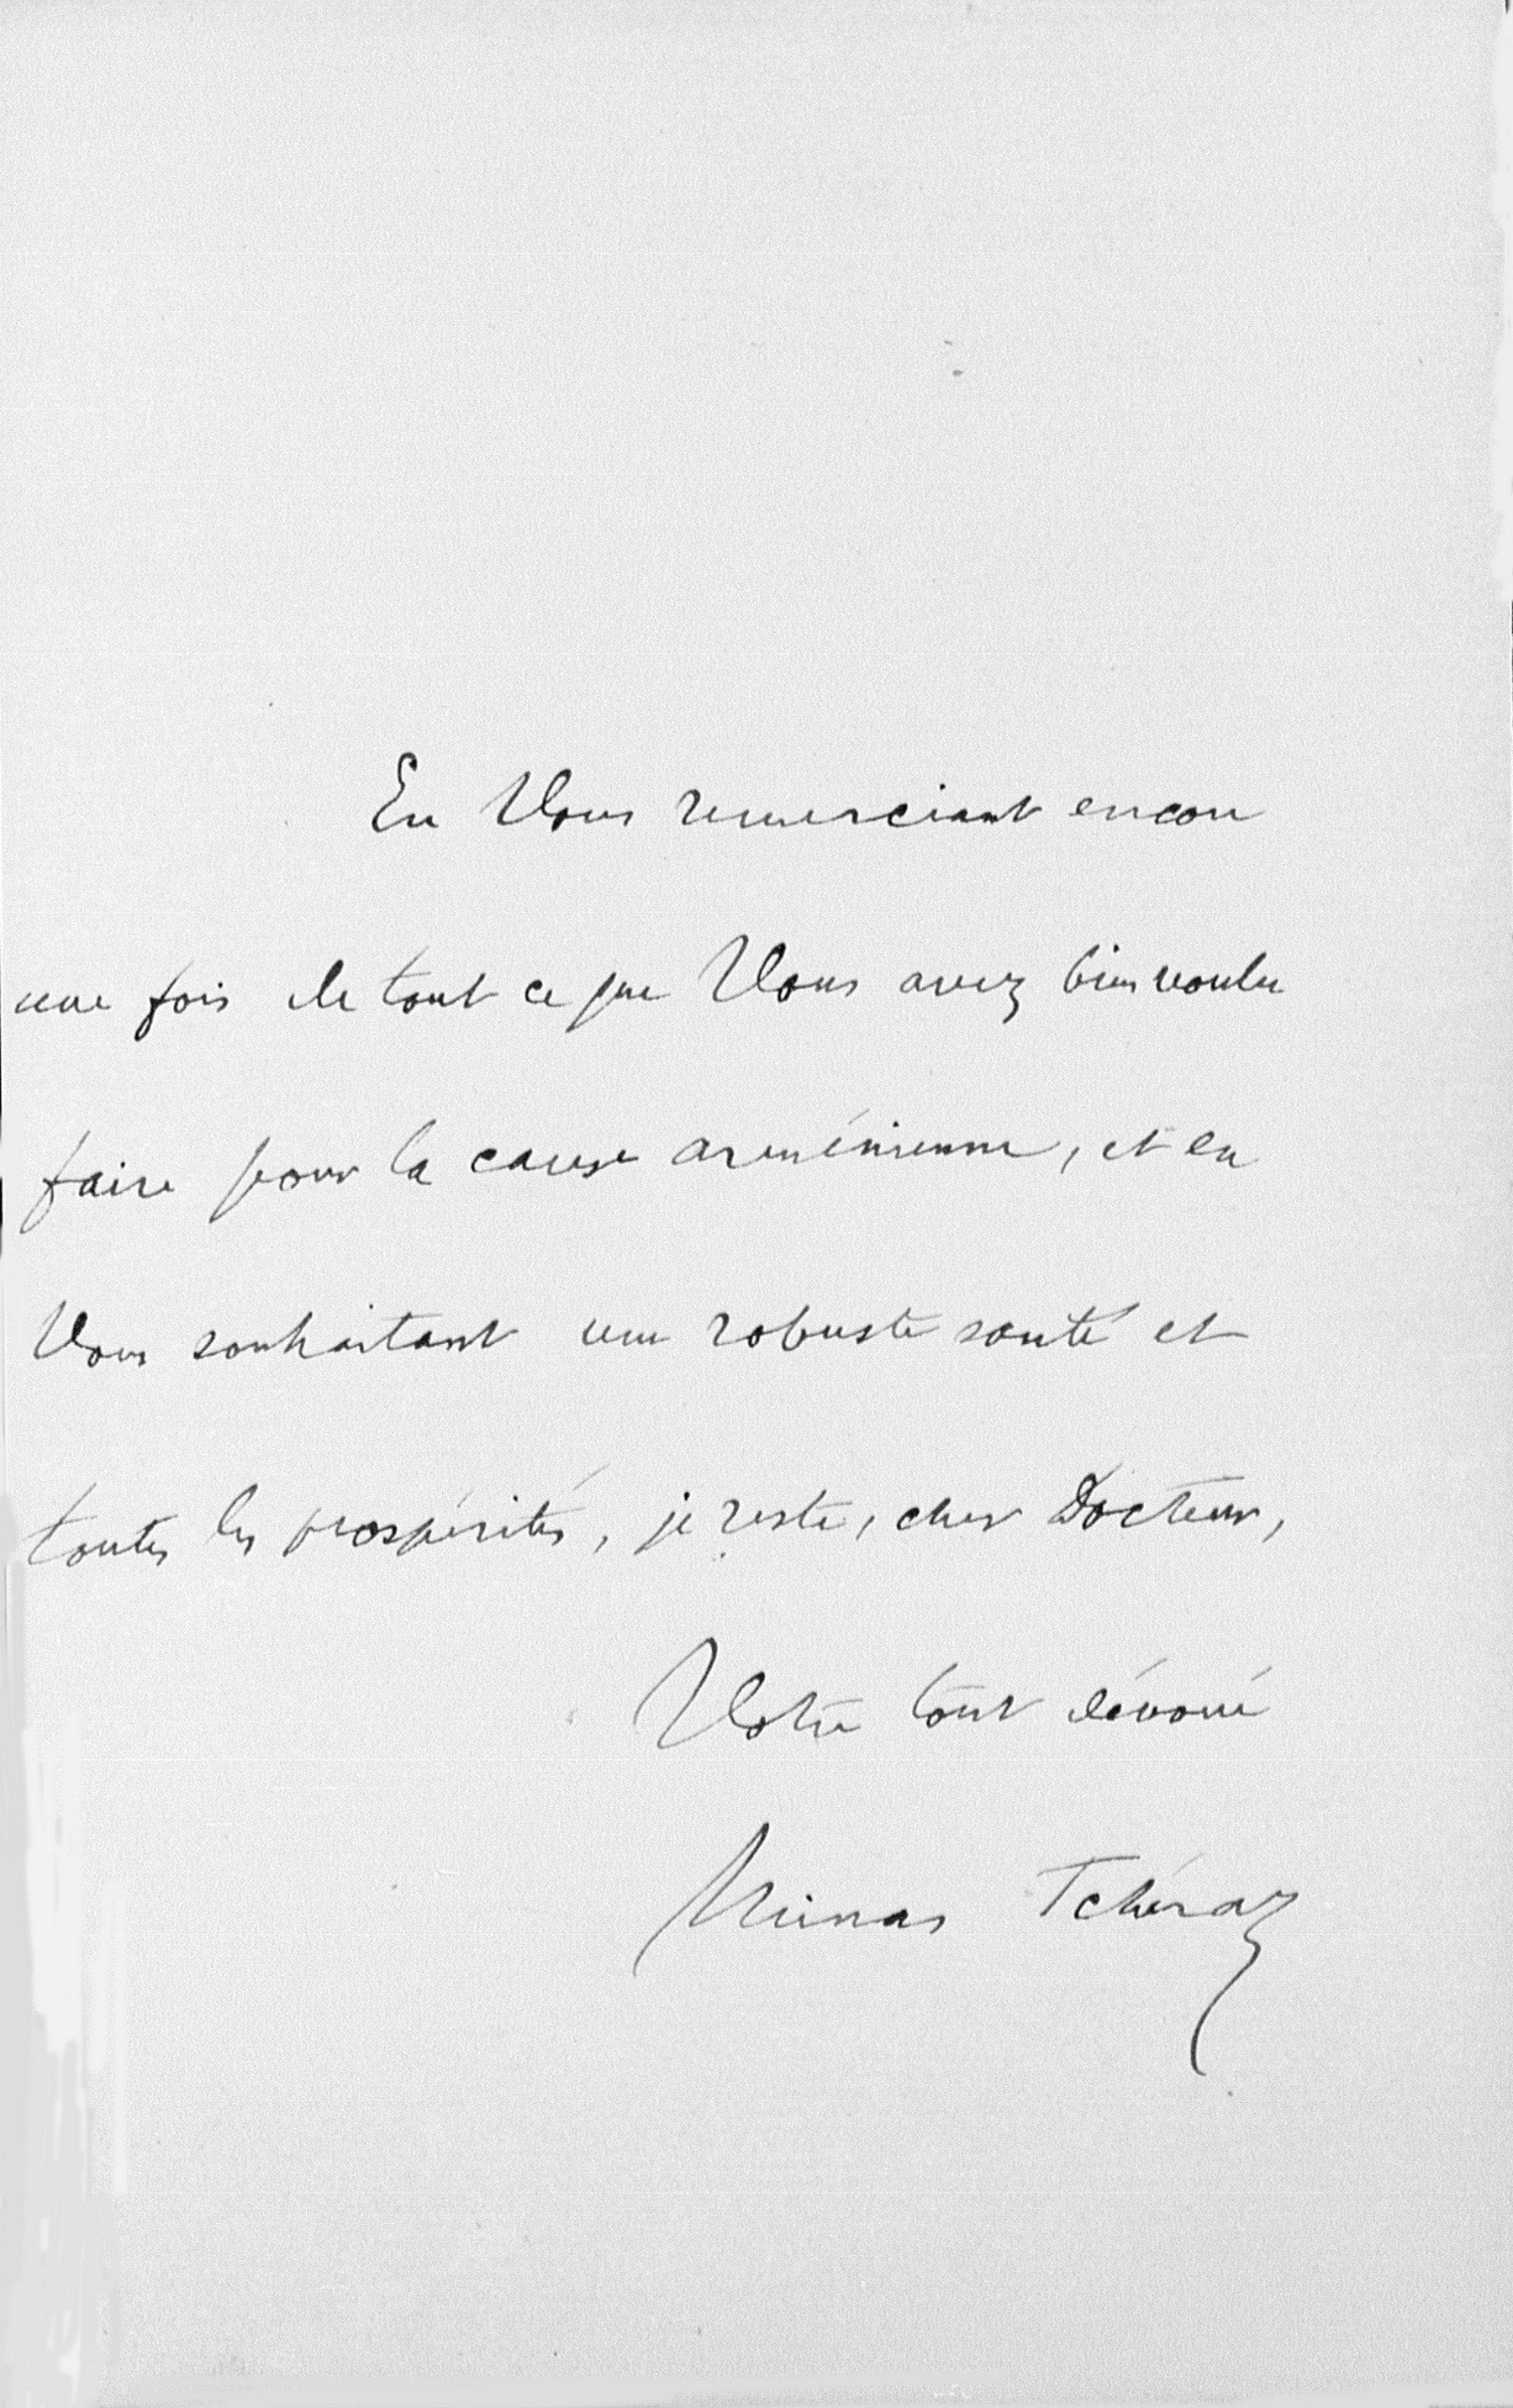 En Vous remerciant encore
une fois de tout ce que Vous avez bien voulu
faire pour la cause arménienne, et en
Vous souhaitant une robuste santé et
toutes les prospérités, je reste, cher Docteur,
Votre tout dévoué
Minas Tchéraz